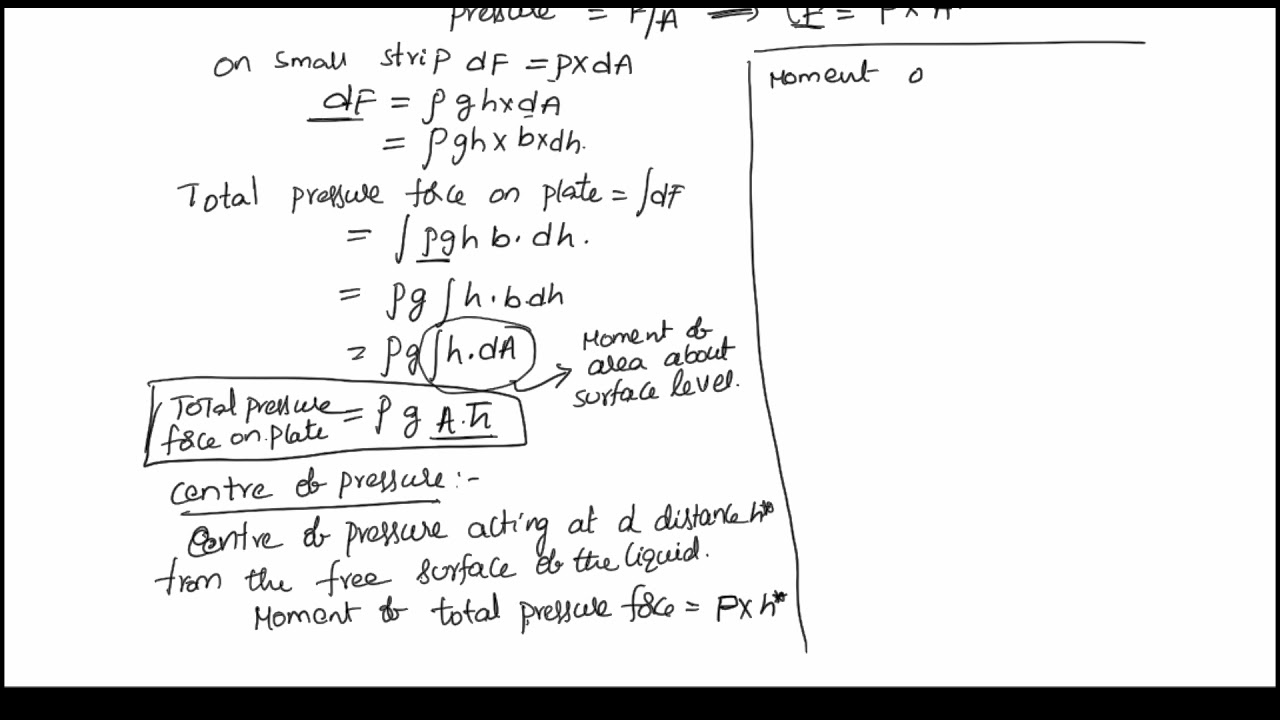 pressure = F/A ⟹ F = P × A
on small strip dF = p×dA
dF = ρgh×dA
= ρgh× b×dh.
Total pressure force on plate = ∫dF
= ∫ρgh b. dh.
= ρg ∫h.b.dh
= ρg ∫h.dA
Moment of
area about
surface level.
Total pressure
force on plate = ρ g A.h̄
centre of pressure :-
Centre of pressure acting at a distance h*
from the free surface of the liquid.
Moment of total pressure force = P×h*
Moment o